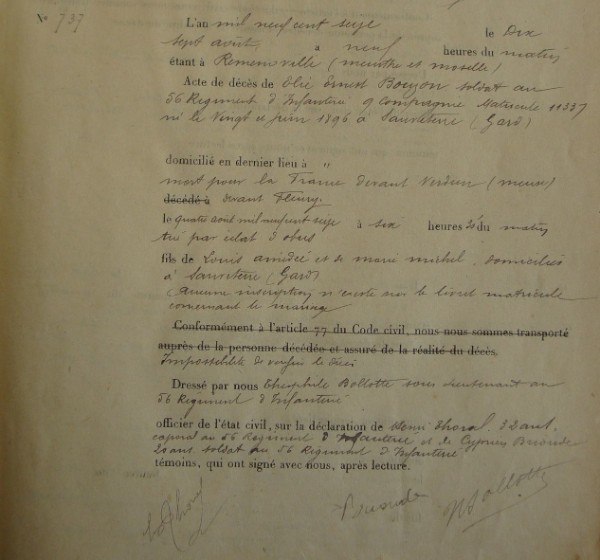 N° 737
L'an mil neuf cent seize le Dix
sept août, à neuf heures du matin
étant à Remenoville (meurthe et moselle)
Acte de décès de Elie Ernest Bouzon soldat au
56 Regiment d'Infanterie 9 Compagnie Matricule 11337
né le Vingt et juin 1896 à Sauveterre (Gard)
domicilié en dernier lieu à "
mort pour la France devant Verdun (meuse)
décédé à devant Fleury.
le quatre août mil neuf cent seize à six heures du matin
tué par éclat d'obus
fils de Louis amédée et de marie michel, domiciliés
à Sauveterre (Gard)
(aucune inscription n'existe sur le livret matricule
concernant le mariage
Conformément à l'article 77 du Code civil, nous nous sommes transporté
auprès de la personne décédée et assuré de la réalité du décès.
Impossibilité de vérifier le décès
Dressé par nous Théophile Bollotte sous lieutenant au
56 Regiment d'Infanterie
officier de l'état civil, sur la déclaration de Henri Thoral, 32 ans,
caporal au 56 Regiment d'Infanterie et de Cyprien Brioude
20 ans soldat au 56 Regiment d'Infanterie
témoins, qui ont signé avec nous, après lecture.
Thoral Brioude Bollotte